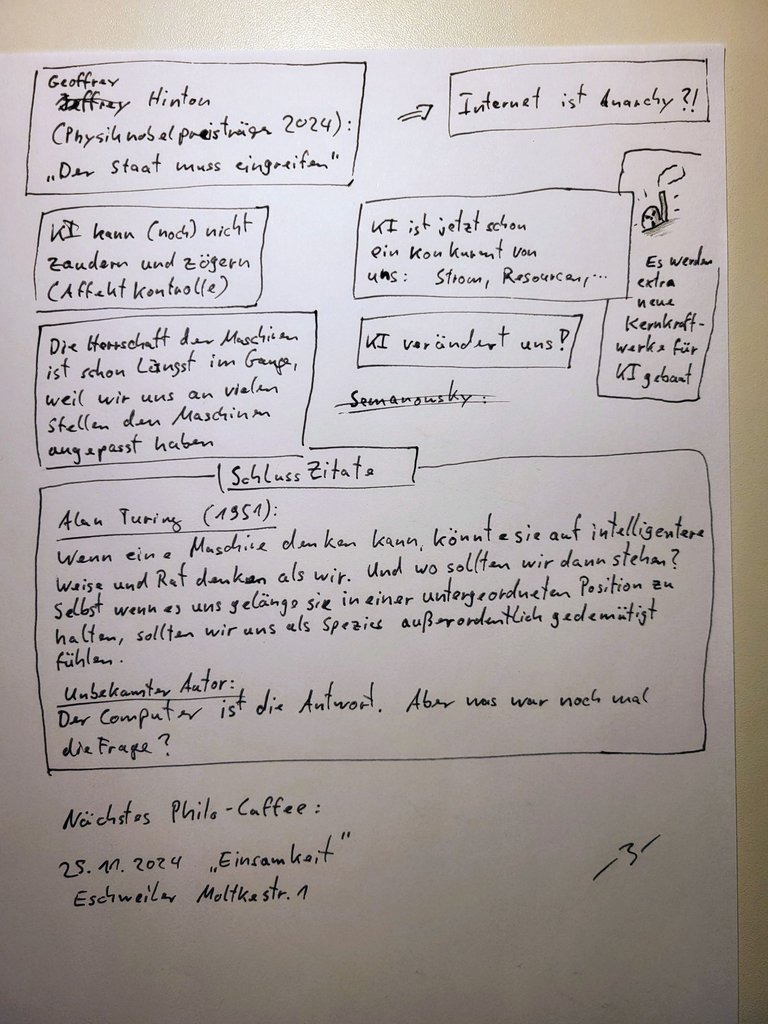 Geoffrey
Jeffrey Hinton
(Physiknobelpreisträger 2024):
„Der Staat muss eingreifen"
=> Internet ist Anarchy?!
KI kann (noch) nicht
zaudern und zögern
(Affektkontrolle)
KI ist jetzt schon
ein Konkurent von
uns: Strom, Resourcen,...
Es werden
extra
neue
Kernkraft-
werke für
KI gebaut
Die Herrschaft der Maschinen
ist schon Längst im Gange,
weil wir uns an vielen
Stellen den Maschinen
angepasst haben
KI verändert uns?
Semanowsky:
Schluss Zitate
Alan Turing (1951):
Wenn eine Maschine denken kann, könnte sie auf intelligentere
Weise und Rat denken als wir. Und wo sollten wir dann stehen?
Selbst wenn es uns gelänge sie in einer untergeordneten Position zu
halten, sollten wir uns als Spezies außerordentlich gedemütigt
fühlen.
Unbekannter Autor:
Der Computer ist die Antwort. Aber was war noch mal
die Frage?
Nächstes Philo-Caffee:
25.11.2024 „Einsamkeit"
Eschweiler Moltkestr. 1
-3-